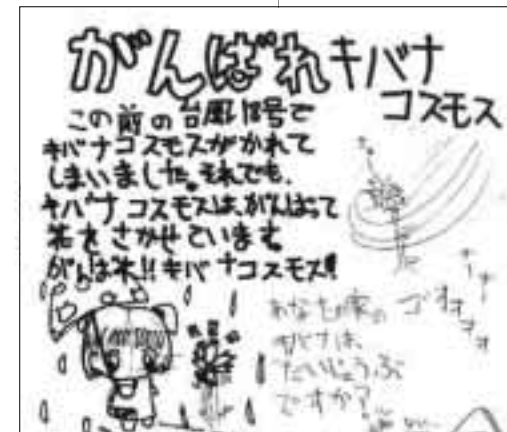 がんばれキバナ
コスモス
この前の台風18号で
キバナコスモスがかれて
しまいました。それでも、
キバナコスモスは、がんばって
花をさかせています。
がんばれ!!キバナコスモス!!
あなたの家の
キバナは、
だいじょうぶ
ですか?
ゴオオオオ